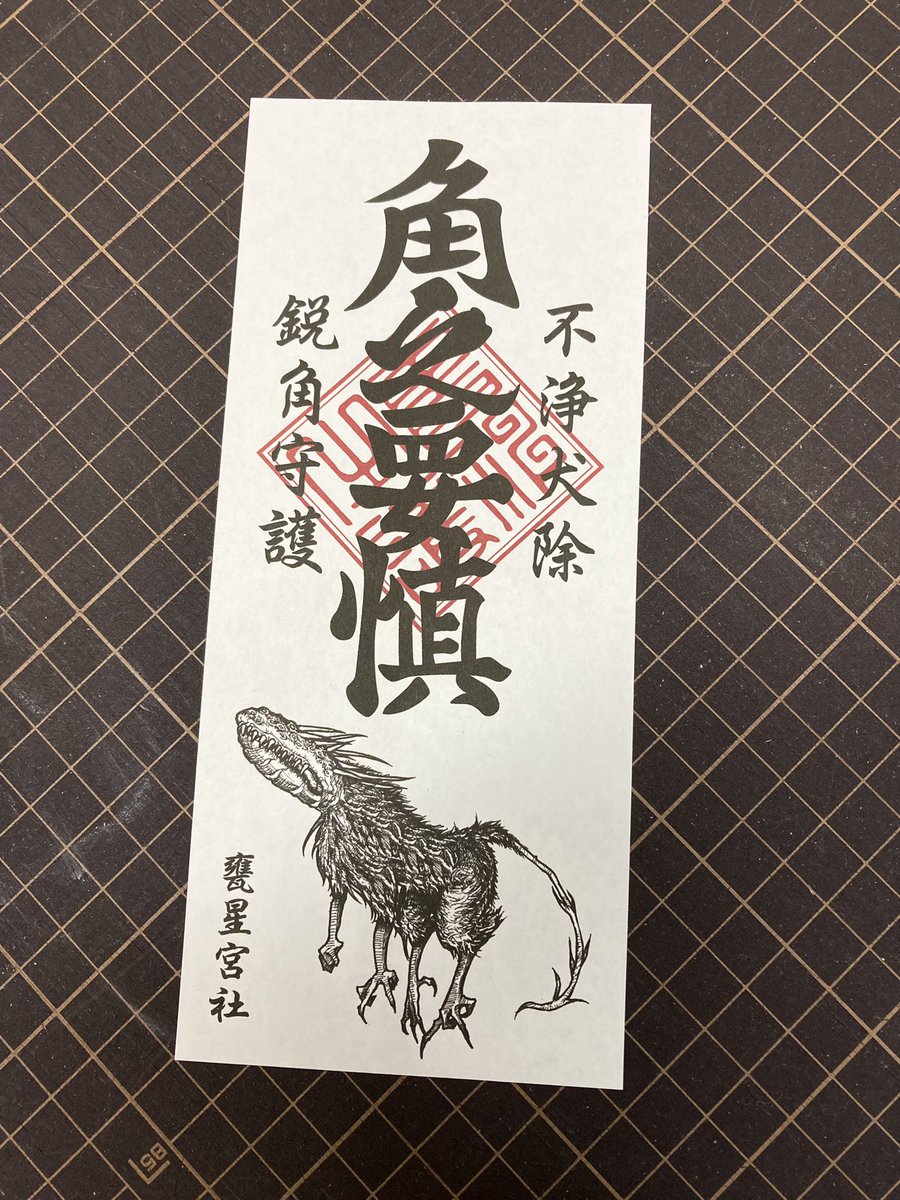 不浄犬除
角之要慎
鋭角守護
甕星宮社
B5